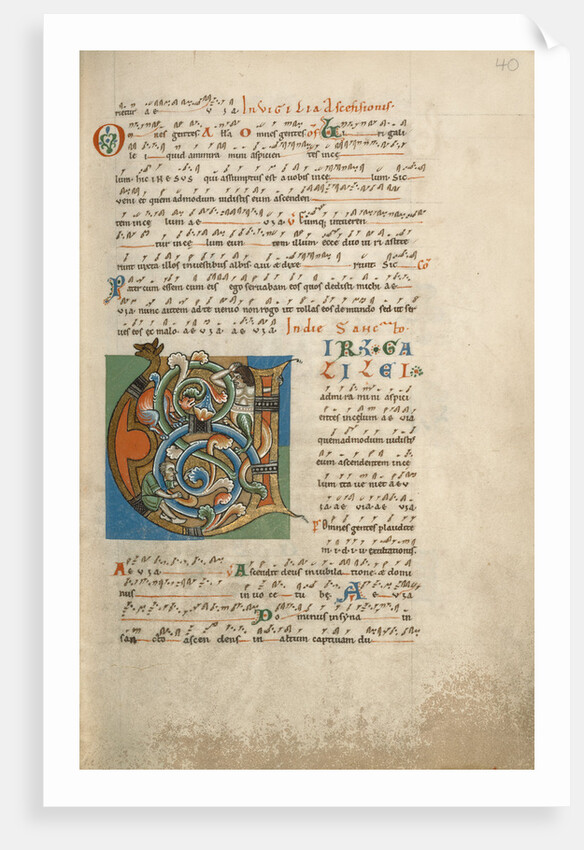 40
rietur a e v i a In vigilia Ascensionis.
Omnes gentes A lla Omnes gentes off Viri gali
le i quid ammira mini aspicien tes in ce
lum. hic IHESUS qui assumptus est a vobis in ce lum. Sic
veni et quem ad modum vidistis eum ascenden
tem in ce lum ae v i a. v Cumq; intueren
tur in ce lum eun tem illum. ecce duo viri astite
runt iuxta illos in vestibus albis. qui & dixe runt. Sic Co
Pater cum essem cum eis ego servabam eos quos dedisti michi ae
via nunc autem ad te venio non rogo ut tollas eos de mundo sed ut ser
ves eos ec malo. ae v i a. ae v i a. In die Sanc to
IRI GA
LILEI
admira mini aspici
entes in celum ae via
quemadmodum vidistis
eum ascendentem in ce
lum ita ve niet ae v
i a. via. ae via.
Omnes gentes plaudite
m. i. d. i. v. exultationis.
Ae v i a v Ascendit deus in iubila tione. & domi
nus in vo ce tu be. Ae via
Do minus in syna in
san cto ascen dens in altum captivam du